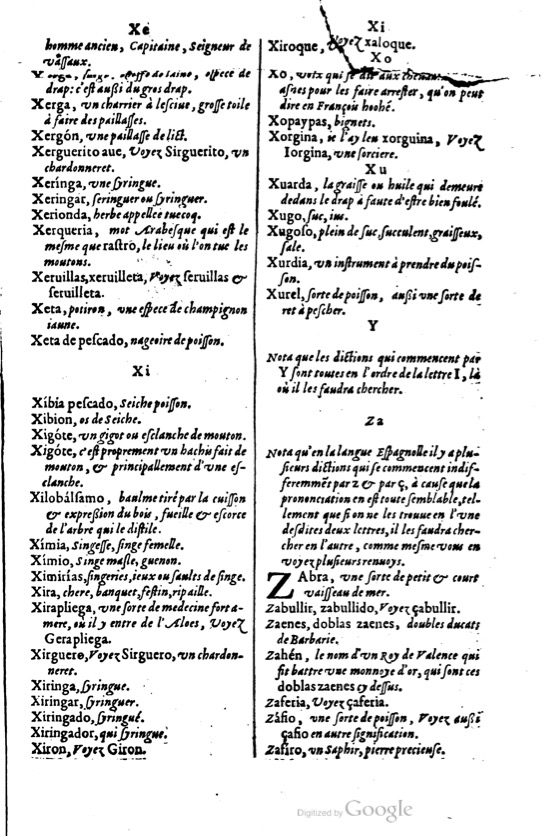 Xe
homme ancien, Capitaine, Seigneur de
vaſſaux.
drap: c'eſt auſſi du gros drap.
Xerga, vn charrier à leſciue, groſſe toile
à faire des paillaſſes.
Xergón, vne paillaſſe de lict.
Xerguerito aue, Voyez Sirguerito, vn
chardonneret.
Xerínga, vne ſyringue.
Xeringar, ſeringuer ou ſyringuer.
Xerionda, herbe appellee tuecoq.
Xerqueria, mot Arabeſque qui eſt le
meſme que raſtro, le lieu où l'on tue les
moutons.
Xeruillas, xeruilleta, Voyez ſeruillas &
ſeruilleta.
Xeta, potiron, vne eſpece de champignon
iaune.
Xeta de peſcado, nageoire de poiſſon.
Xi
Xibia peſcado, Seiche poiſſon.
Xibion, os de Seiche.
Xigóte, vn gigot ou eſclanche de mouton.
Xigóte, c'eſt proprement vn hachu fait de
mouton, & principallement d'vne eſ-
clanche.
Xilobálſamo, baulme tiré par la cuiſſon
& expreſſion du bois, fueille & eſcorce
de l'arbre qui le diſtile.
Xímia, Singeſſe, ſinge femelle.
Xímio, Singe maſle, guenon.
Ximirías, ſingeries, ieux ou ſaults de ſinge.
Xira, chere, banquet, feſtin, ripaille.
Xirapliega, vne ſorte de medecine fort a-
mere, où il y entre de l'Aloes, Voyez
Gerapliega.
Xirguero, Voyez Sirguero, vn chardon-
neret.
Xiringa, ſyringue.
Xiringar, ſyringuer.
Xiringado, ſyringué.
Xiringador, qui ſyringue.
Xiron, Voyez Giron.
Xi
Xiroque, Voyez xaloque.
Xo
Xo, voix qui ſe dit aux
aſnes pour les faire arreſter, qu'on peut
dire en François hoohé.
Xopaypas, bignets.
Xorgina, ie l'ay leu xorguina, Voyez
Iorgina, vne ſorciere.
Xu
Xuarda, la graiſſe ou huile qui demeure
dedans le drap à faute d'eſtre bien foulé.
Xugo, ſuc, ius.
Xugoſo, plein de ſuc, ſucculent, graiſſeux,
ſale.
Xurdia, vn inſtrument à prendre du poiſ-
ſon.
Xurel, ſorte de poiſſon, auſſi vne ſorte de
ret à peſcher.
Y
Nota que les dictions qui commencent par
Y ſont toutes en l'ordre de la lettre I, là
où il les faudra chercher.
Za
Nota qu'en la langue Eſpagnolle il y a plu-
ſieurs dictions qui ſe commencent indif-
feremmēt par z & par ç, à cauſe que la
prononciation en eſt toute ſemblable, tel-
lement que ſi on ne les trouue en l'vne
deſdites deux lettres, il les faudra cher-
cher en l'autre, comme meſme vous en
voyez pluſieurs renuoys.
ZAbra, vne ſorte de petit & court
vaiſſeau de mer.
Zabullir, zabullido, Voyez çabullir.
Zaenes, doblas zaenes, doubles ducats
de Barbarie.
Zahén, le nom d'vn Roy de Valence qui
fit battre vne monnoye d'or, qui ſont ces
doblas zaenes cy deſſus.
Zaferia, Voyez çaferia.
Záfio, vne ſorte de poiſſon, Voyez auſſi
çafio en autre ſignification.
Zafiro, vn Saphir, pierre precieuſe.
Digitized by Google